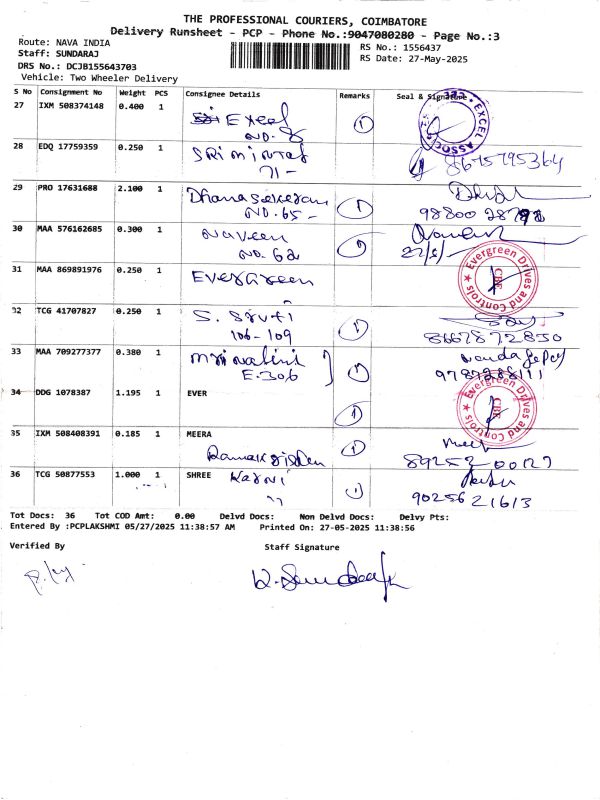 THE PROFESSIONAL COURIERS, COIMBATORE
Delivery Runsheet - PCP - Phone No.:9047080280 - Page No.:3
Route: NAVA INDIA
Staff: SUNDARAJ
DRS No.: DCJB155643703
Vehicle: Two Wheeler Delivery
RS No.: 1556437
RS Date: 27-May-2025
S No Consignment No Weight PCS Consignee Details Remarks Seal & Signature
27 IXM 508374148 0.400 1 Excel 1
NO. 8
EXCEL ASSOCIATES
28 EDQ 17759359 0.250 1 Sri mintas 8675795364
71 -
29 PRO 17631688 2.100 1 Dhanasekeran 1
NO. 65 -
30 MAA 576162685 0.300 1 Naveen
NO. 62
31 MAA 869891976 0.250 1 Evergreen
Evergreen Drives and Controls CBE
32 TCG 41707827 0.250 1 S. Sruti 1
106-109 8667872830
33 MAA 709277377 0.380 1 Mrinalini 1
E-306 9787288111
34 DDG 1078387 1.195 1 EVER 1
Evergreen Drives and Controls CBE
35 IXM 508408391 0.185 1 MEERA 1
36 TCG 50877553 1.000 1 SHREE 1
9025621613
Tot Docs: 36 Tot COD Amt: 0.00 Delvd Docs: Non Delvd Docs: Delvy Pts:
Entered By :PCPLAKSHMI 05/27/2025 11:38:57 AM Printed On: 27-05-2025 11:38:56
Verified By Staff Signature